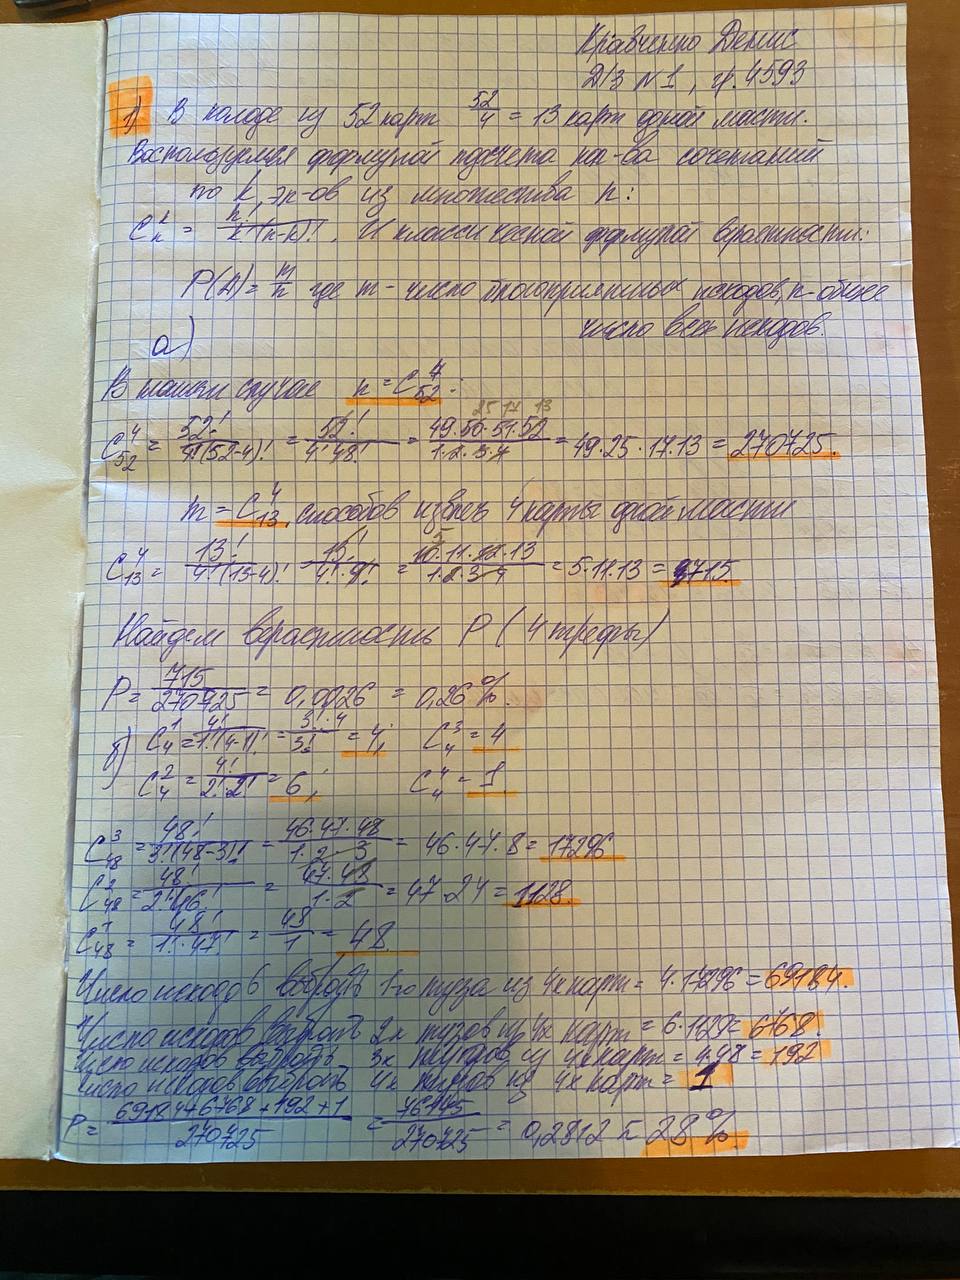 Кравченко Денис
Д/З №1, гр. 4593
1) В колоде из 52 карт 52/4 = 13 карт одной масти.
Воспользуемся формулой подсчета кол-ва сочетаний
по k эл-ов из множества n:
C_n^k = n!/k!(n-k)!. И классической формулой вероятности:
P(A) = m/n где m - число благоприятных исходов, n - общее
число всех исходов.
а)
В нашем случае n = C_52^4:
C_52^4 = 52!/4!(52-4)! = 52!/4!48! = 49·50·51·52/1·2·3·4 = 49·25·17·13 = 270725.
m = C_13^4, способов извлечь 4 карты одной масти
C_13^4 = 13!/4!(13-4)! = 13!/4!·9! = 10·11·12·13/1·2·3·4 = 5·11·13 = 715.
Найдем вероятность P (4 трефы)
P = 715/270725 = 0,0026 = 0,26%.
б) C_4^1 = 4!/1!(4-1)! = 3!·4/3! = 4; C_4^3 = 4
C_4^2 = 4!/2!·2! = 6; C_4^4 = 1
C_48^3 = 48!/3!(48-3)! = 46·47·48/1·2·3 = 46·47·8 = 17296
C_48^2 = 48!/2!·46! = 47·48/1·2 = 47·24 = 1128.
C_48^1 = 48!/1!·47! = 48/1 = 48.
Число исходов выбрать 1-го туза из 4х карт = 4·17296 = 69184.
Число исходов выбрать 2х тузов из 4х карт = 6·1128 = 6768.
Число исходов выбрать 3х тузов из 4х карт = 4·48 = 192
Число исходов выбрать 4х тузов из 4х карт = 1
P = 69184+6768+192+1/270725 = 76145/270725 = 0,2812 ≈ 28%.